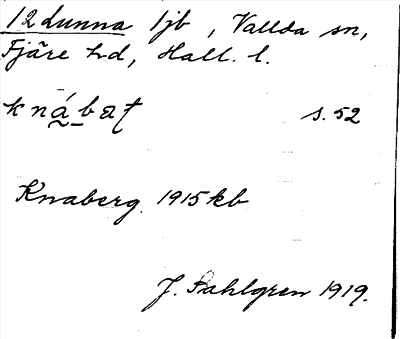 12 Lunna 1jb, Vallda sn,
Fjäre hd, Hall. l.
knábat s. 52
Knaberg. 1915 kb
J. Sahlgren 1919.